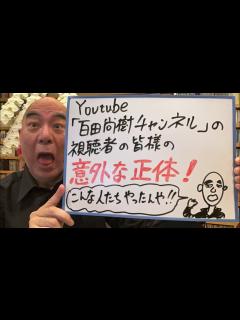 Youtube
「百田尚樹チャンネル」の
視聴者の皆様の
意外な正体！
こんな人たちやったんや!!